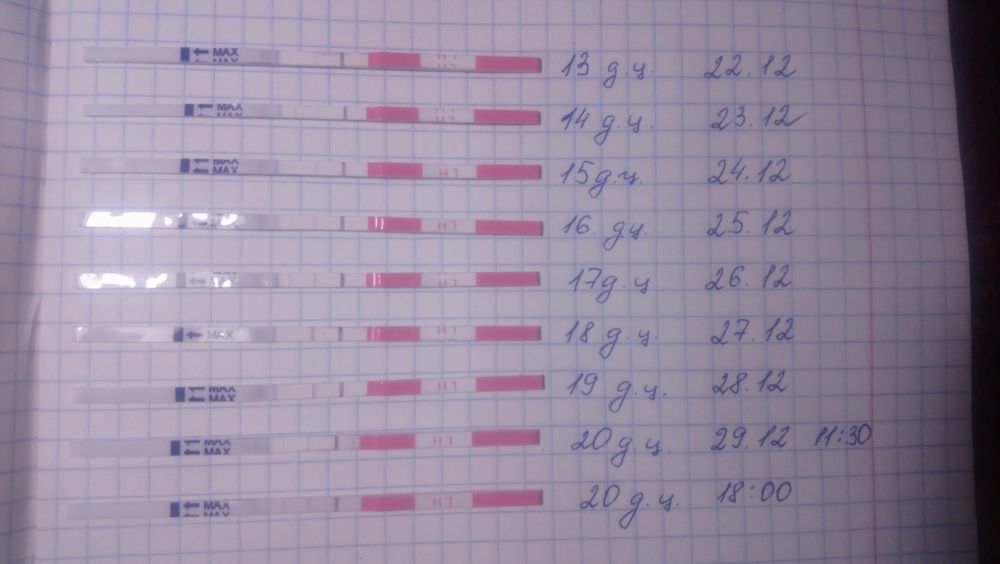 MAX LH 13 д.ц. 22.12
MAX LH 14 д.ц. 23.12
MAX LH 15 д.ц. 24.12
LH 16. д.ц. 25.12
17 д.ц 26.12
MAX LH 18 д.ц. 27.12
MAX MAX LH 19 д.ц. 28.12
MAX MAX LH 20 д.ц. 29.12 11:30
MAX LH 20 д.ц. 18:00